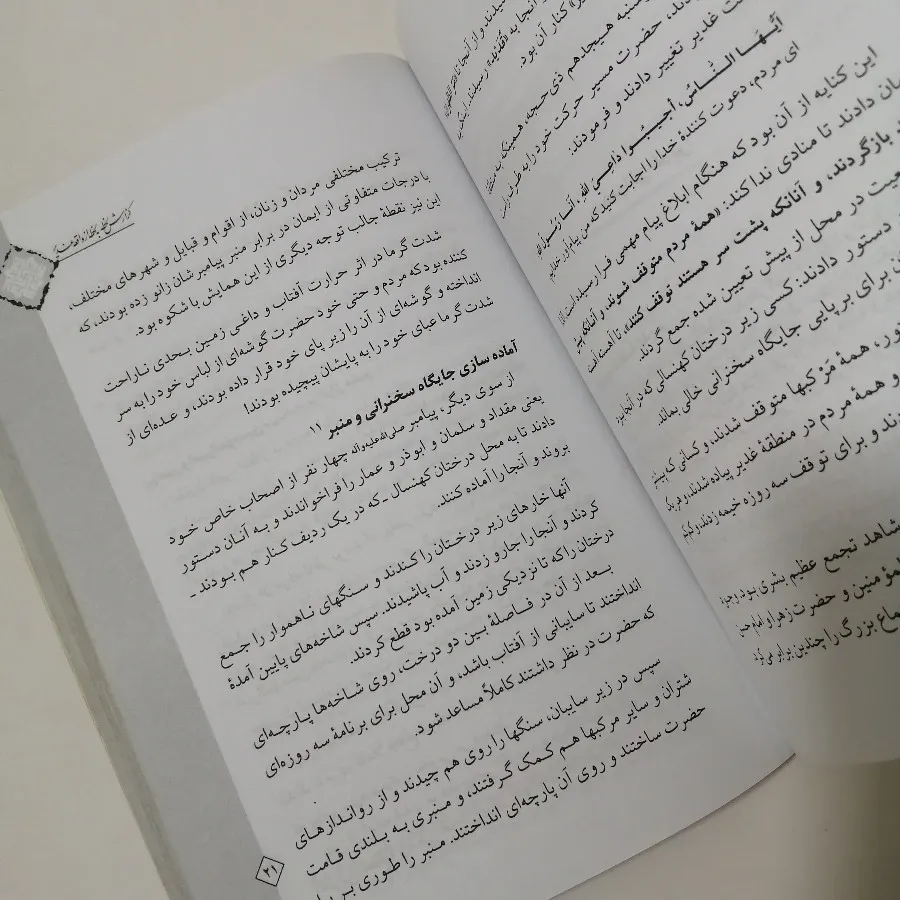 حضرت مسیر حرکت خود را به طرف راست
ت غدیر تغییر دادند و فرمودند:
أیُّهَا النّاسُ، أجیبُوا داعِيَ اللَّهِ، أنَا رَسُولُ اللَّهِ
ای مردم، دعوت کنندهٔ خدا را اجابت کنید که من پیام آور خدایم
این کنایه از آن بود که هنگام ابلاغ پیام مهمی فرا رسیده است
ان دادند تا منادی ندا کند: «همهٔ مردم متوقف شوند و آنانکه پیش
د بازگردند، و آنانکه پشت سر هستند توقف کنند» تا آهسته آهسته
عیت در محل از پیش تعیین شده جمع گردند.
دستور دادند: کسی زیر درختان کهنسالی که در آنجا بود
ن برای برپایی جایگاه سخنرانی خالی بماند.
ور، همهٔ مَرْکبها متوقف شدند، و کسانی که پیشتر
و همهٔ مردم در منطقهٔ غدیر پیاده شدند و هر یک
ند و برای توقف سه روزه خیمه زدند
شاهد تجمع عظیم بشری بود و وجود
لمؤمنین و حضرت زهرا و امام حسن
ماع بزرگ را چندین برابر می‌کرد
ترکیب مختلفی مردان و زنان، از اقوام و قبایل و شهرهای مختلف،
با درجات متفاوتی از ایمان در برابر منبر پیامبرشان زانو زده بودند، که
این نیز نقطهٔ جالب توجه دیگری از این همایش با شکوه بود.
شدت گرما در اثر حرارت آفتاب و داغی زمین بحدی ناراحت
کننده بود که مردم و حتی خود حضرت گوشه‌ای از لباس خود را به سر
انداخته و گوشه‌ای از آن را زیر پای خود قرار داده بودند، و عده‌ای از
شدت گرما عبای خود را به پایشان پیچیده بودند!
آماده سازی جایگاه سخنرانی و منبر ۱۱
از سوی دیگر، پیامبر صلی‌الله‌علیه‌وآله چهار نفر از اصحاب خاص خود
یعنی مقداد و سلمان و ابوذر و عمار را فراخواندند و به آنان دستور
دادند تا به محل درختان کهنسال ـ که در یک ردیف کنار هم بودند ـ
بروند و آنجا را آماده کنند.
آنها خارهای زیر درختان را کندند و سنگهای ناهموار را جمع
کردند و آنجا را جارو زدند و آب پاشیدند. سپس شاخه‌های پایین آمدهٔ
درختان را که تا نزدیکی زمین آمده بود قطع کردند.
بعد از آن در فاصلهٔ بین دو درخت، روی شاخه‌ها پارچه‌ای
انداختند تا سایبانی از آفتاب باشد، و آن محل برای برنامهٔ سه روزه‌ای
که حضرت در نظر داشتند کاملاً مساعد شود.
سپس در زیر سایبان، سنگها را روی هم چیدند و از رواندازهای
شتران و سایر مرکبها هم کمک گرفتند، و منبری به بلندی قامت
حضرت ساختند و روی آن پارچه‌ای انداختند. منبر را طوری بر پا
۲۱